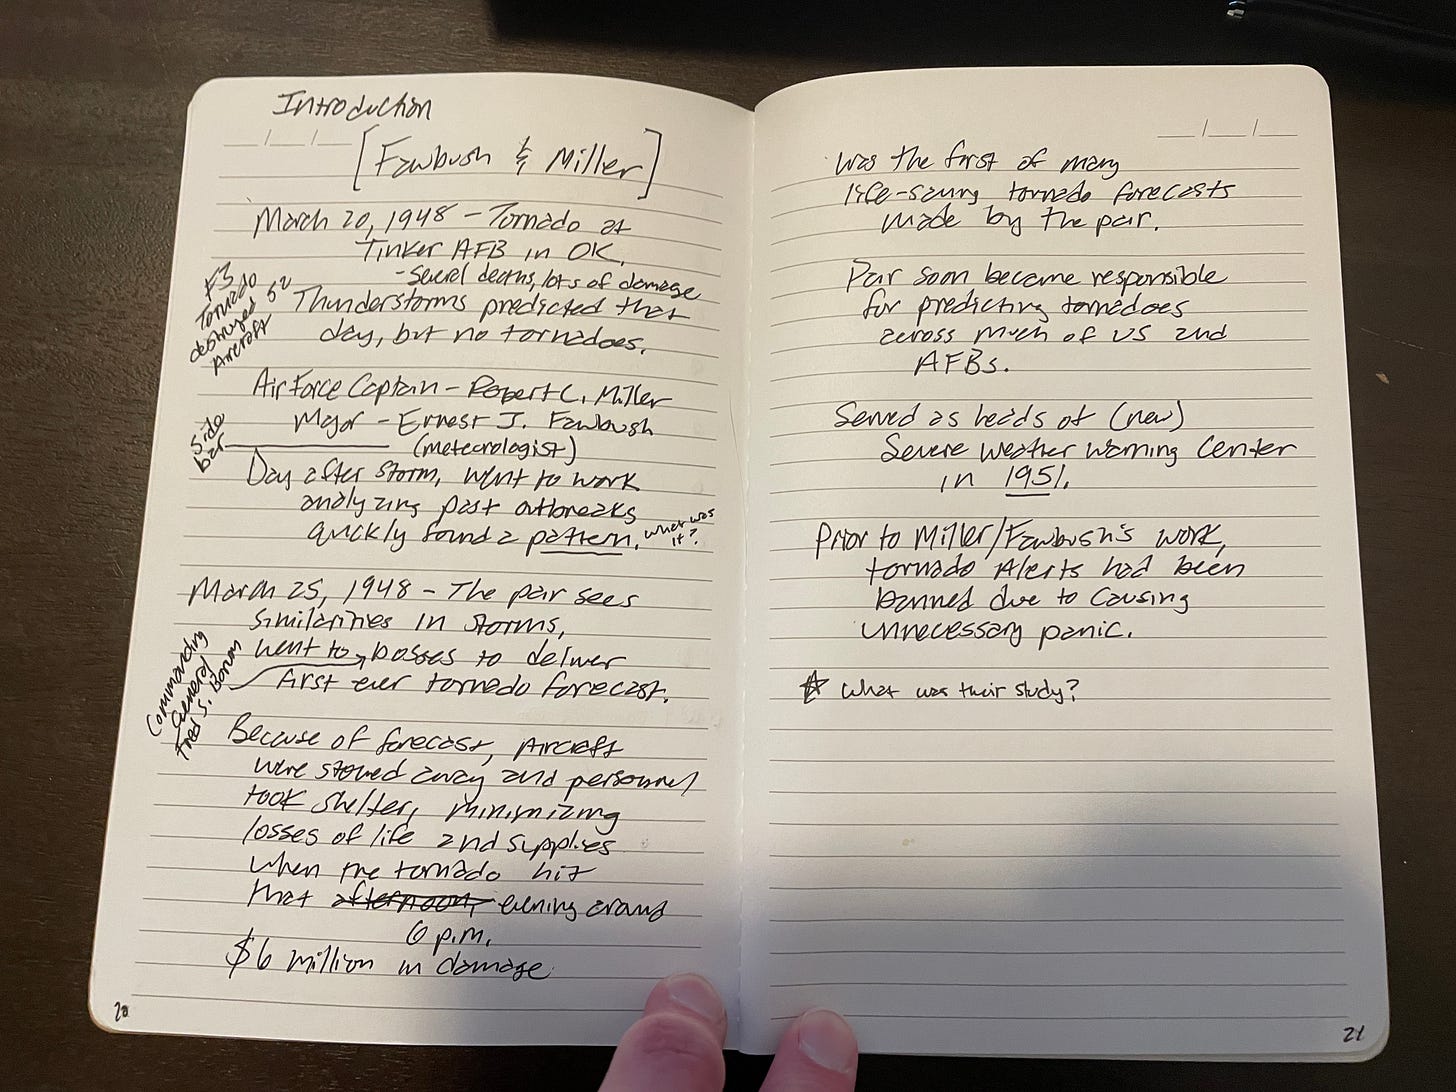 Introduction
[Fawbush & Miller]
March 20, 1948 - Tornado at
Tinker AFB in OK.
- Several deaths, lots of damage
Thunderstorms predicted that
day, but no tornadoes.
F3
Tornado
destroyed 52
Aircraft
Air Force Captain - Robert C. Miller
Major - Ernest J. Fawbush
(meteorologist)
Side
bar
Day after storm, went to work
analyzing past outbreaks
quickly found a pattern. what was
it?
March 25, 1948 - The pair sees
similarities in storms,
went to bosses to deliver
first ever tornado forecast.
Commanding
General
Fred S. Borum
Because of forecast, Aircraft
were stowed away and personnel
took shelter, minimizing
losses of life and supplies
when the tornado hit
that afternoon, evening around
6 p.m.
$6 million in damage
20
was the first of many
life-saving tornado forecasts
made by the pair.
Pair soon became responsible
for predicting tornadoes
across much of US and
AFBs.
Served as heads of (new)
Severe Weather Warning Center
in 1951.
Prior to Miller/Fawbush's work,
tornado Alerts had been
banned due to causing
unnecessary panic.
☆ What was their study?
21